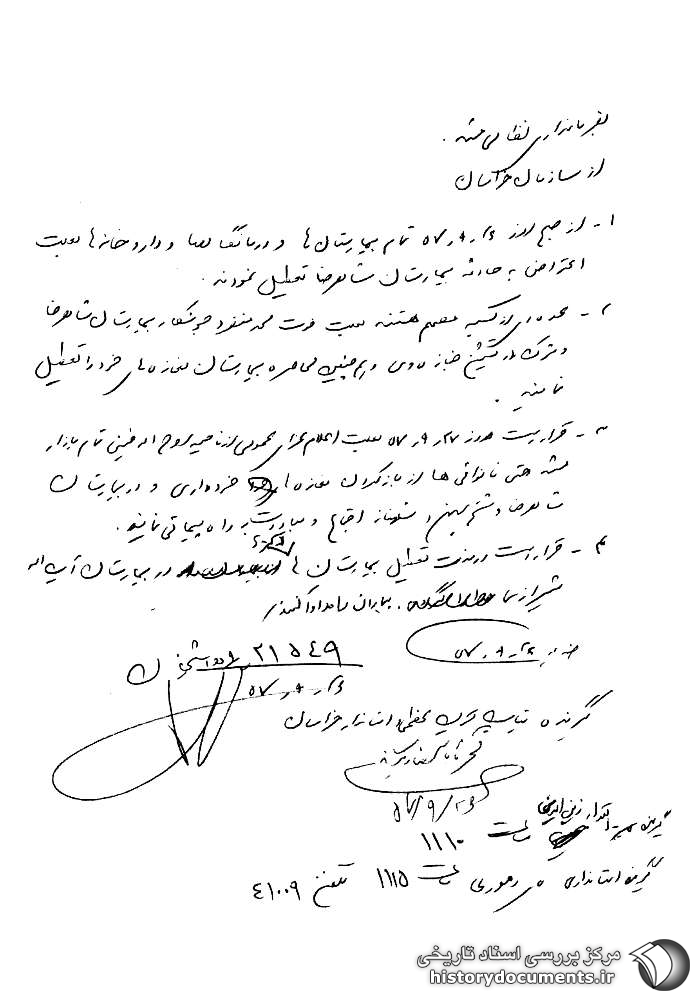 بفرمانداری نظامی مشهد .
از سازمان خراسان
۱ - از صبح روز ۲۶ر۹ر۵۷ تمام بیمارستان ها و درمانگاهها و داروخانه ها بعلت
اعتراض به حادثه بیمارستان شاهرضا تعطیل نمودند .
۲ - عده ای از کسبه مصمم هستند بعلت فوت محمد منفرد جوشکار بیمارستان شاهرضا
و شرکت در تشییع جنازه وی و همچنین محاصره بیمارستان مغازه های خود را تعطیل
نمایند .
۳ - قرار است روز ۲۷ر۹ر۵۷ بعلت اعلام عزای عمومی از ناحیه روح اله خمینی تمام بازار
مشهد حتی نانوائی ها از باز کردن مغازه ها خودداری و در بیمارستان
شاهرضا و اجتماع و مبادرت به راه پیمائی نمایند .
۴ - قرار است در مدت تعطیل بیمارستان ها در بیمارستان آیت اله
شیرازی بیماران را مداوا کنند
۲۶ر۹ر۵۷
۲۱۵۴۹
۲۶ر۹ر۵۷
گیرنده استاندار خراسان
۵۷/۹/۲۶
گیرنده ساعت ۱۱۱۰
گیرنده استانداری ساعت ۱۱۱۵ تلفن ۴۱۰۰۹
مرکز بررسی اسناد تاریخی
historydocuments.ir